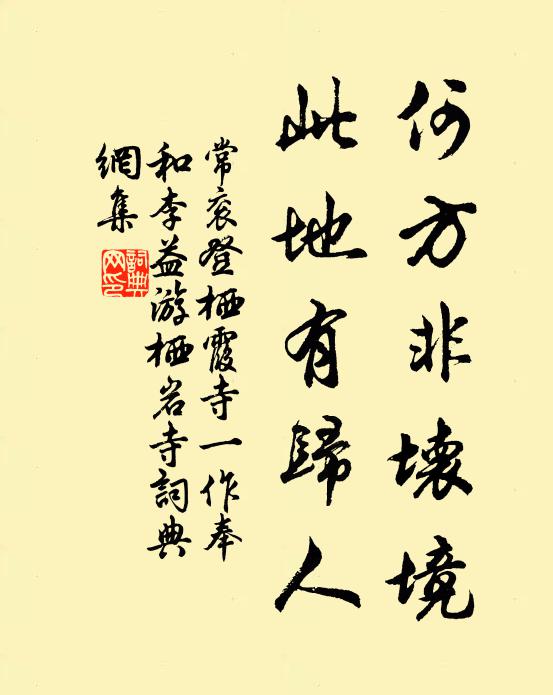 何方非壞境
此地有歸人
常衮登栖霞寺一作奉
和李益游栖岩寺詞典
網集
詞典網印